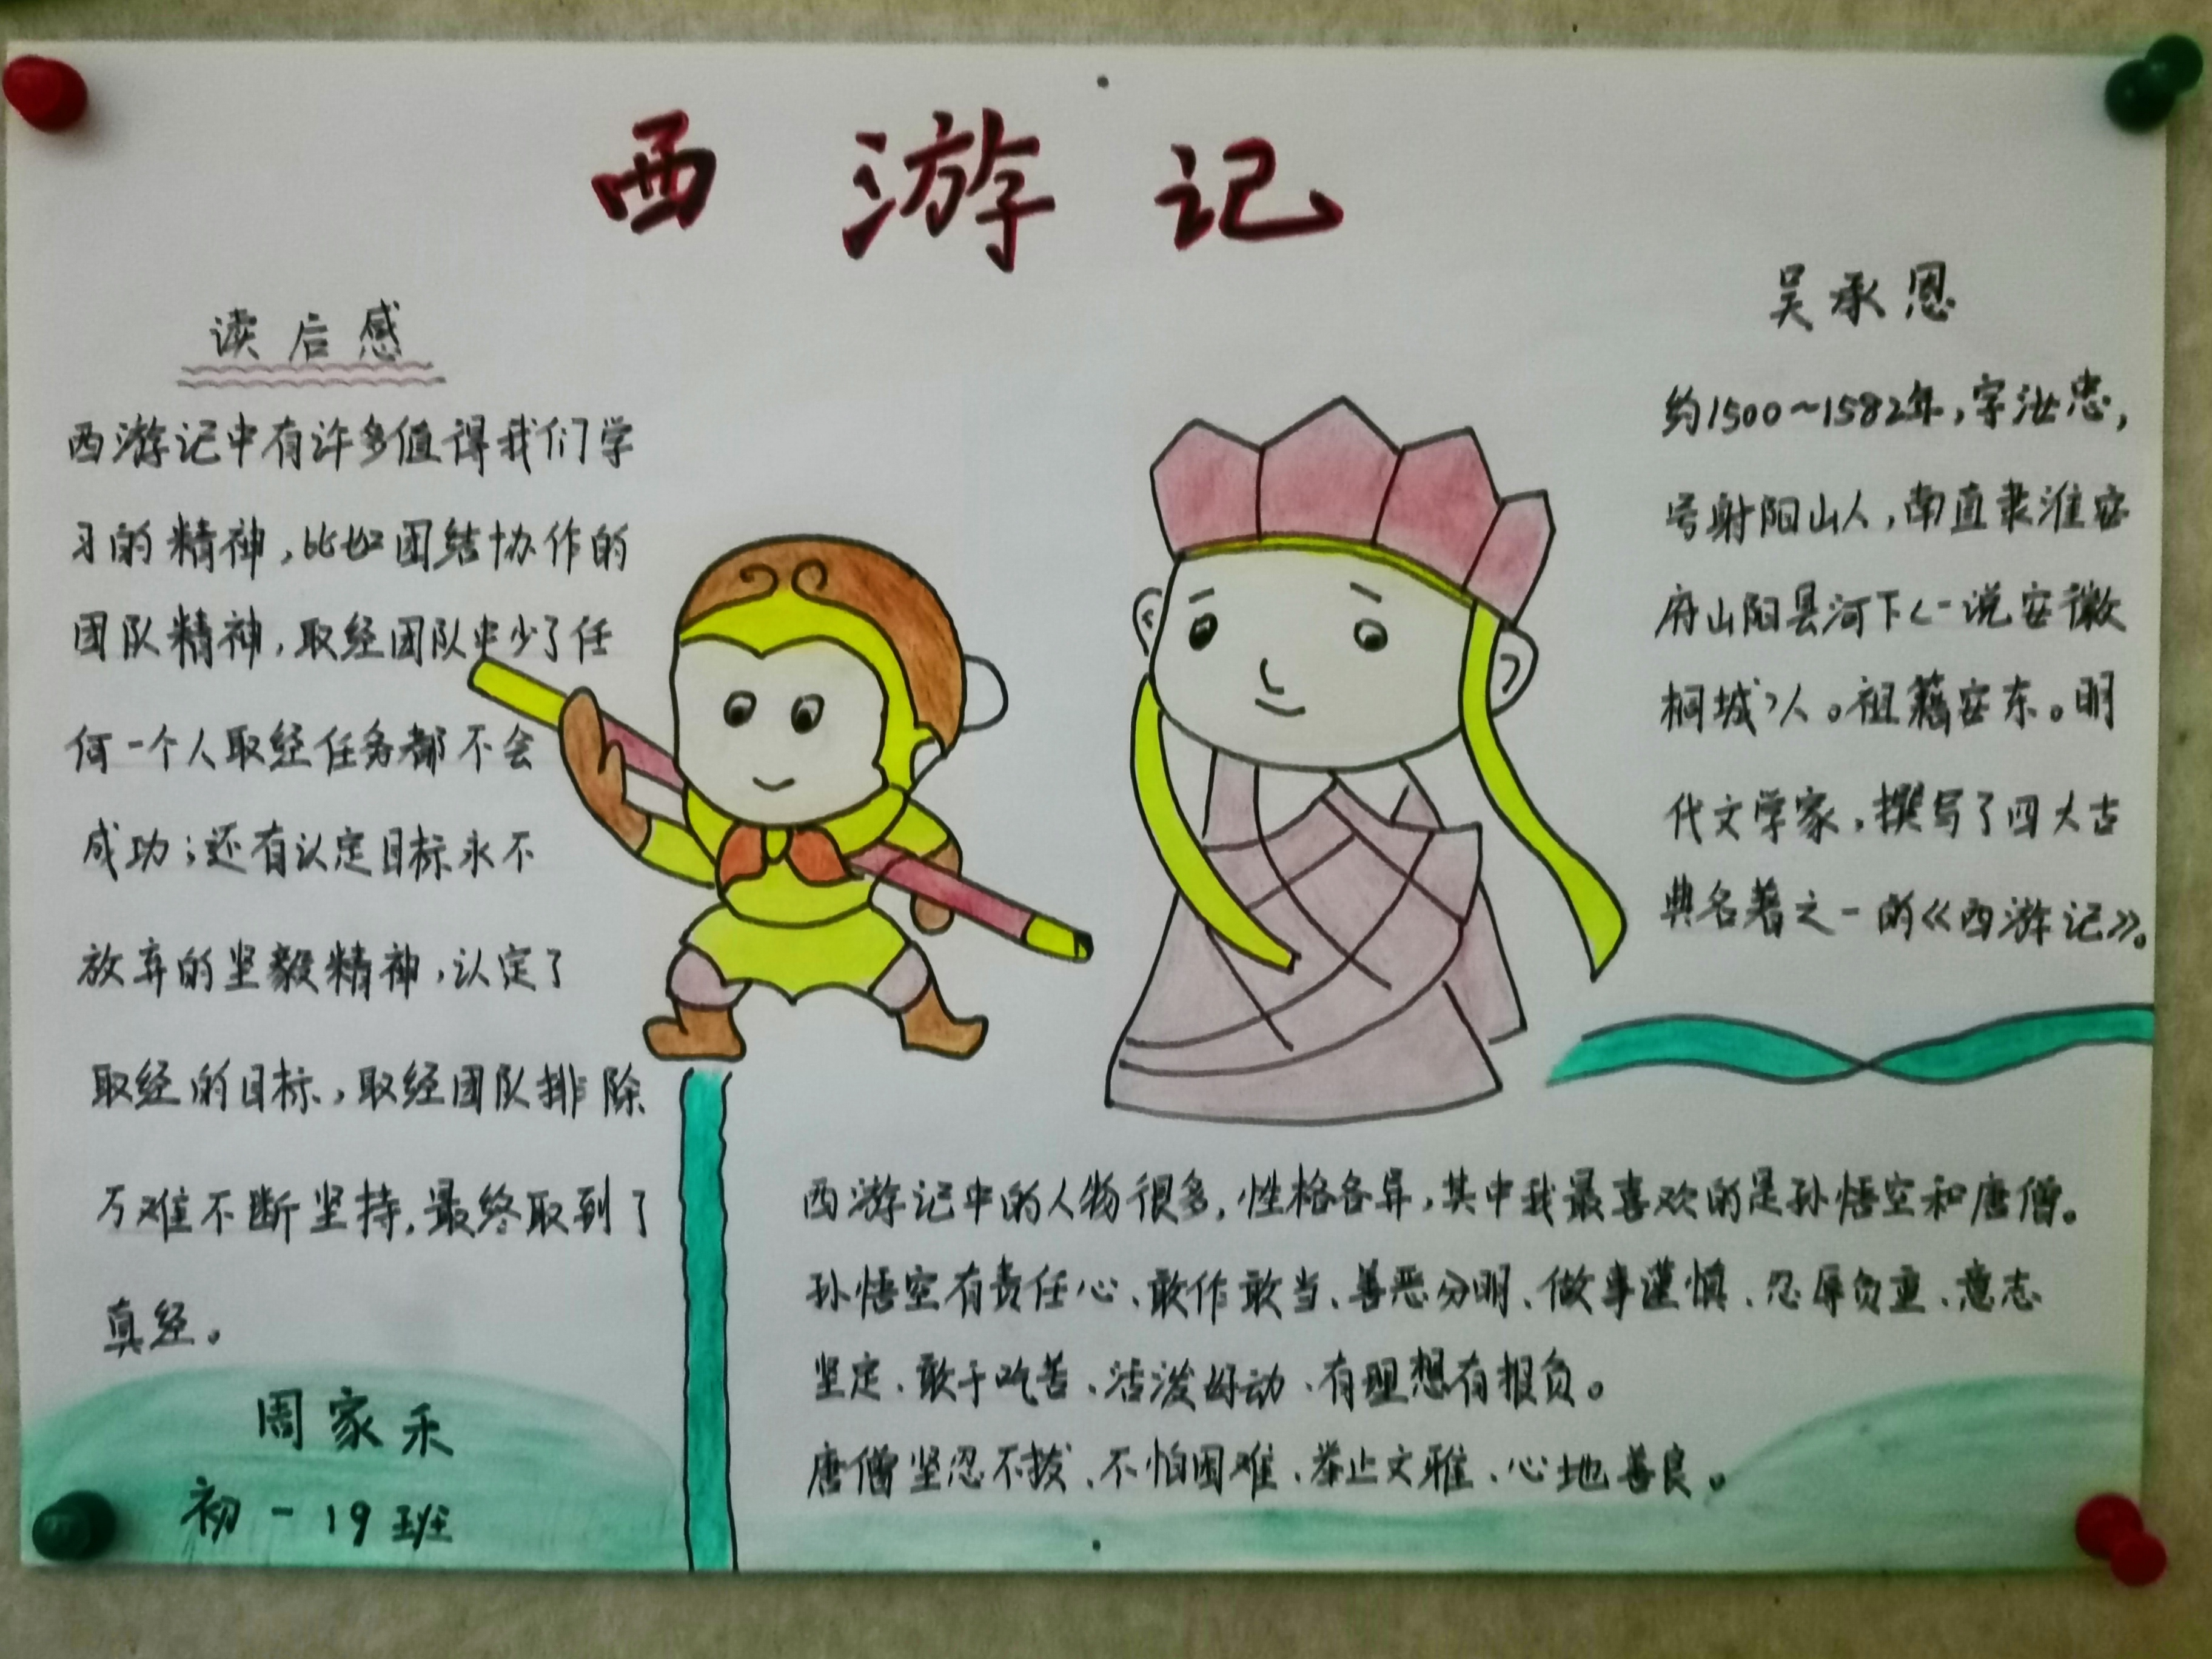 西游记
读后感
西游记中有许多值得我们学
习的精神,比如团结协作的
团队精神,取经团队中少了任
何一个人取经任务都不会
成功;还有认定目标永不
放弃的坚毅精神,认定了
取经的目标,取经团队排除
万难不断坚持,最终取到了
真经。
周家禾
初一19班
吴承恩
约1500~1582年,字汝忠,
号射阳山人,南直隶淮安
府山阳县河下<一说安徽
桐城>人。祖籍安东。明
代文学家,撰写了四大古
典名著之一的《西游记》。
西游记中的人物很多,性格各异,其中我最喜欢的是孙悟空和唐僧。
孙悟空有责任心、敢作敢当、善恶分明、做事谨慎、忍辱负重、意志
坚定、敢于吃苦、活泼好动、有理想有报负。
唐僧坚忍不拔、不怕困难、举止文雅、心地善良。